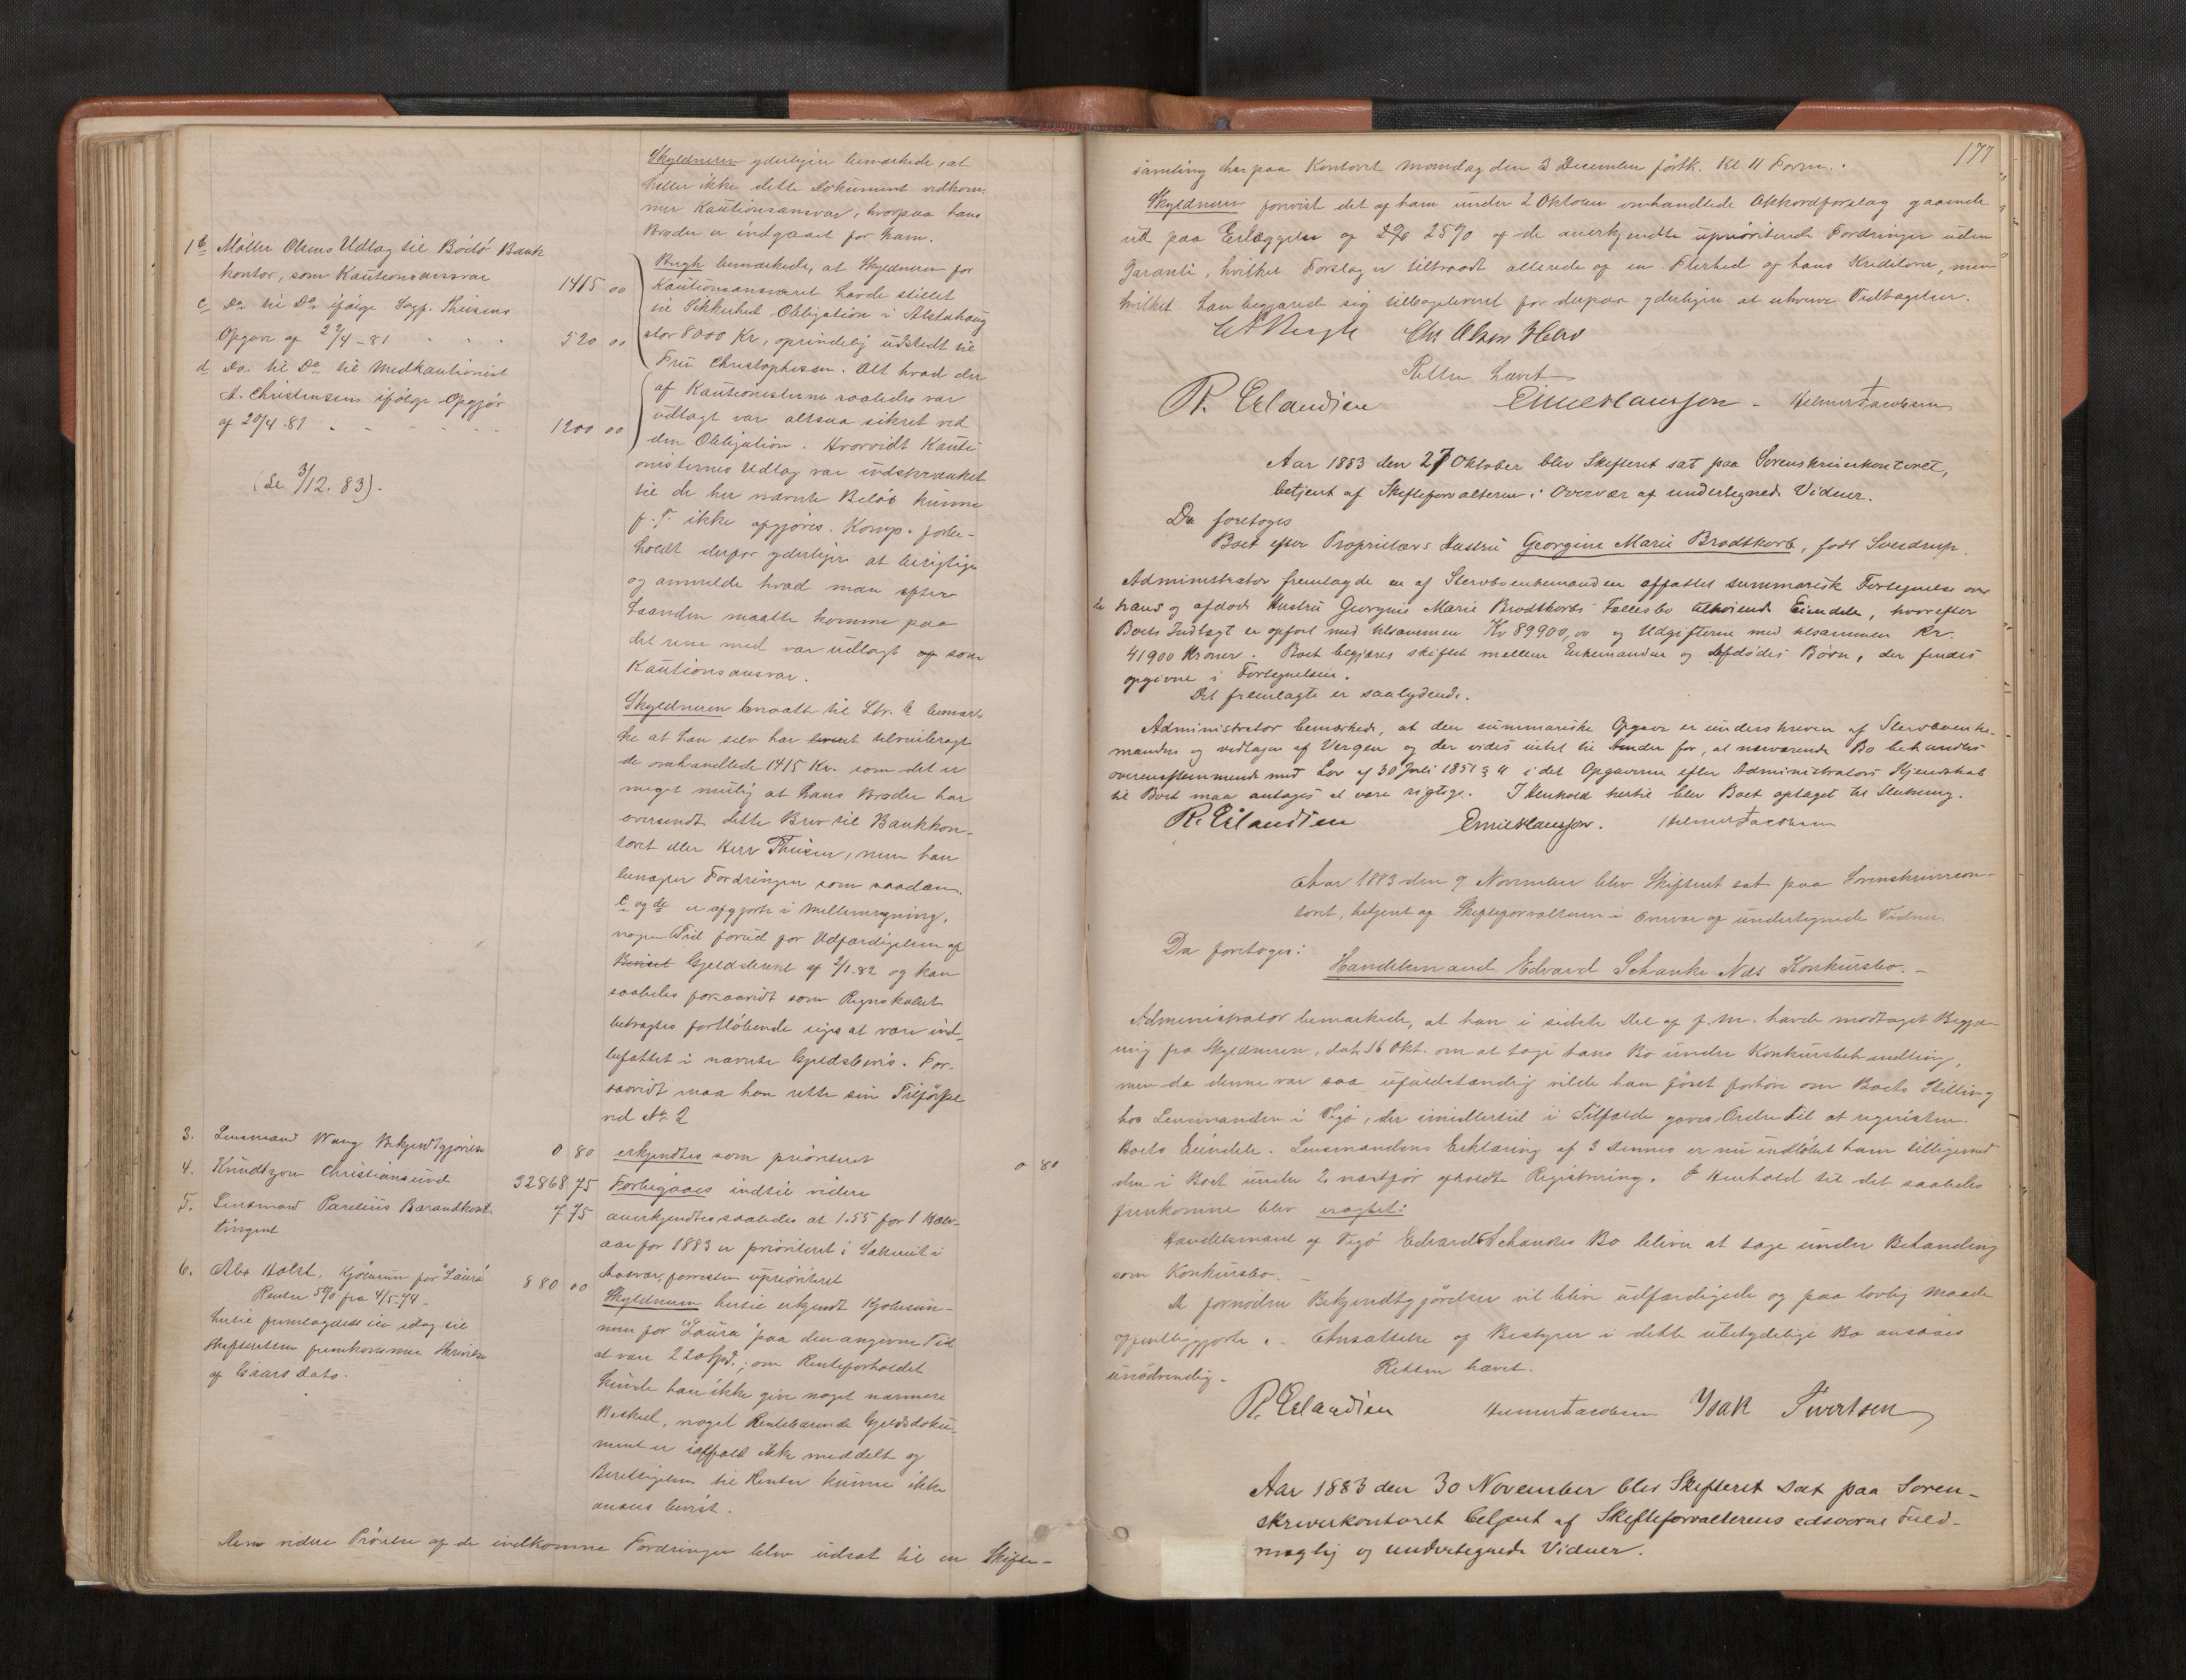 Skyldneren yderligere bemærkede, at
heller ikke dette Dokument vedkom-
mer Kautionsansvar, hvorpaa hans
Broder er indgaaet for ham.
1 b Møller Olsens Udlæg til Bodø Bank
kontor, som Kautionsansvar 1415 00
c Do til Do ifølge Sagf. Theisens
Opgave af 22/4-81 520 00
d Do. til Do til Medkautionist
A. Christensen ifølge Opgjør
af 20/4-81 1200 00
(Se 3/12. 83).
Bugh bemærkede, at Skyldneren for
Kautionsansvaret havde stillet
til Sikkerhed Obligation i Alstahoug
stor 8000 Kr, oprindelig udstedt til
Fru Christophersen. Alt hvad der
af Kautionisterne saaledes var
udlagt var altsaa sikret ved
den Obligation. Hvorvidt Kauti-
onisternes Udlæg var indskrænket
til de her nævnte Beløb kunne
p. T. ikke opgjøres. Komp. forbe-
holdt derfor yderligere at berigtige
og anmelde hvad man efter-
haanden maatte komme paa
det rene med var udlagt som
Kautionsansvar.
Skyldneren til Ltr. b bemær-
ke at han selv har tilveiebragt
de omhandlede 1415 Kr. som det er
meget mulig at hans Broder har
oversendt dette Brev til Bankkon-
toret eller Herr Theisen, men han
benægter Fordringen som saadan.
c og d er opgjorte i Mellemregning,
nogen Tid forud for Udfærdigelsen af
Beviset Gjeldsbevis af 2/1.82 og kan
saaledes forsaavidt som Regnskabet
betragtes fortløbende siges at være ind-
befattet i nævnte Gjeldsbevis. For-
saavidt maa han rette sin Tilførsel
ved No 2
3. Lensmand Wang Bekjendtgjørelse 0 80 erkjendtes som prioriteret 0 80
4. Knudtzon Christiansund 32868 75 Forbigaaes indtil videre
5. Lensmand Parelius Barandkont- 7 75 anerkjendtes saaledes at 1.55 for 1 Halv-
tingent aar for 1883 er prioriteret i
6. Abr Holst, Kjøbesum for "Laura" 880 00 forresten uprioriteret
Renter 5% fra 4/5-74
hertil fremlagdes en idag til
Skifteretten fremkommen Skrivelse
af Gaars Dato.
Skyldneren hertil erkjendt Kjøbesum-
men for "Laura" paa den angivne Tid
at være 220 Spd.; om Renteforholdet
kunde han ikke give noget nærmere
Besked, noget Rentebærende Gjeldsdoku-
ment er iallfald ikke meddelt og
Berettigelsen til Renter kunne ikke
ansees bevist.
Den videre Prøvelse af de indkomne Fordringer blev udsat til en Skifte-
177
samling her paa Kontoret Mandag den 3 December førstk. Kl 11 Form.
Skyldneren foreviste det af ham under 2 Oktober omhandlede Akkordforslag gaaende
ud paa Erlæggelse af 25% af de anerkjendte uprioriterede Fordringer uden
Garanti, hvilket Forslag er tiltraadt allerede af en Flerhed af hans Kreditorer, men
hvilket han begjærede sig tilbageleveret for derpaa yderligere at erhverve Vedtagelser.
Chr Olsen Holst
Retten hævet
R. Erlandsen Emil Hansson. Helmer Jacobsen
Aar 1883 den 27 Oktober blev Skifteret sat paa Sorenskriverkontoret,
betjent af Skifteforvalteren i Overvær af undertegnede Vidner.
Da foretoges
Boet efter Proprietærs Hustru Georgine Marie Brodtkorb, født Sverdrup.
Administrator fremlagde en af Stervboenkemanden affattet summarisk Fortegnelse over
de hans og afdøde Hustru Georgine Marie Brodtkorbs Fællesbo tilhørende Eiendele, hvorefter
Boets Indtægt er opført med tilsammen Kr 89900,00 og Udgifterne med tilsammen Kr.
41900 Kroner. Boet begjæres skiftet mellem Enkemanden og Afdødes Børn, der findes
opgivne i Fortegnelsen.
Det fremlagte er saalydende.
Administrator bemærkede, at den summariske Opgave er underskreven af Stervboenke-
manden og vedtagen af Vergen og der vides intet til Hinder for, at nærværende Bo behandles
overensstemmende med Lov af 30 Juli 1851 § 4 idet Opgaverne efter Administrators Kjendskab
til Boet maa antages at være rigtige. I Henhold hertil blev Boet optaget til Slutning.
R. Erlandsen Emil Hansson. Helmer Jacobsen
Aar 1883 den 9 November blev Skifteret sat paa Sorenskriverkon-
toret, betjent af Skifteforvalteren i Overvær af undertegnede Vidner.
Da foretoges:
Handelsmand Edvard Schanke Næs Konkursbo.
Administrator bemærkede, at han i sidste Del af f. M. havde modtaget Begjæ-
ring fra Skyldneren, dat. 16 Okt. om at tage hans Bo under Konkursbehandling,
men da denne var saa ufuldstændig vilde han først forhøre om Boets Stilling
hos Lensmanden i Vegø, der imidlertid i Tilfælde gaves Ordre til at registrere
Boets Eiendele. Lensmandens Erklæring af 3 dennes er nu indløbet ham tilligemed
den i Boet under 2 næstfør afholdte Registrering. I Henhold til det saaledes
fremkomne blev eragtet:
Handelsmand af Vegø Edvard Schankes Bo bliver at tage under Behandling
som Konkursbo.
De fornødne Bekjendtgjørelser vil blive udfærdigede og paa lovlig Maade
offentliggjorte. Ansættelse af Bestyrer i dette ubetydelige Bo ansaaes
unødvendig.
Retten hævet.
R. Erlandsen Helmer Jacobsen Isak Sivertsen
Aar 1883 den 30 November blev Skifteret sat paa Soren-
skriverkontoret betjent af Skifteforvalterens edsvorne Fuld-
mægtig og undertegnede Vidner.